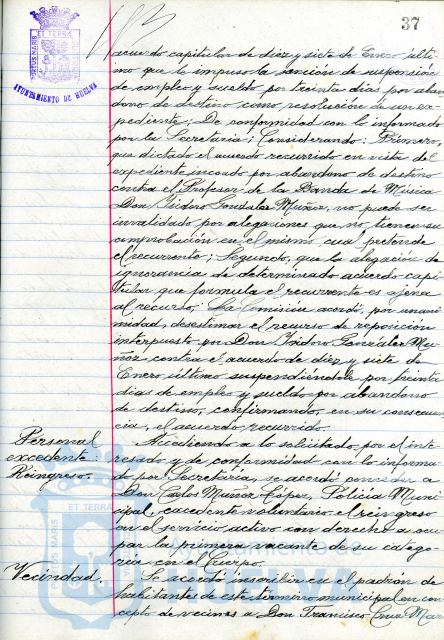 37
PORTUS MARIS ET TERRAE
AYUNTAMIENTO DE HUELVA
acuerdo capitular de diez y siete de Enero últi-
mo que le impuso la sanción de suspensión
de empleo y sueldo por treinta días por aban-
dono de destino como resolución de un ex-
pediente; De conformidad con lo informado
por la Secretaría; Considerando: Primero,
que dictado el acuerdo recurrido en vista del
expediente incoado por abandono de destino
contra el Profesor de la Banda de Música
Don Isidoro González Muñoz, no puede ser
invalidado por alegaciones que no tienen su
comprobación en el mismo cual pretende
el recurrente; Segundo, que la alegación de
ignorancia de determinado acuerdo capi-
tular que formula el recurrente es ajena
al recurso; La Comisión acordó, por unani-
midad, desestimar el recurso de reposición
interpuesto por Don Isidoro González Mu-
ñoz contra el acuerdo de diez y siete de
Enero último suspendiéndole por treinta
días de empleo y sueldo por abandono
de destino, confirmando, en su consecuen-
cia, el acuerdo recurrido.
Personal
excedente:
Reingreso.
Accediendo a lo solicitado por el inte-
resado y de conformidad con lo informa-
do por Secretaría, se acordó conceder a
Don Carlos Muñoz López, Policía Muni-
cipal, excedente voluntario el reingreso
en el servicio activo con derecho a ocu-
par la primera vacante de su catego-
ría en el Cuerpo.
Vecindad.
Se acordó inscribir en el padrón de
habitantes de este término municipal en con-
cepto de vecinos a Don Francisco Cruz
ET TERRA
Ayuntamiento de
HUELVA